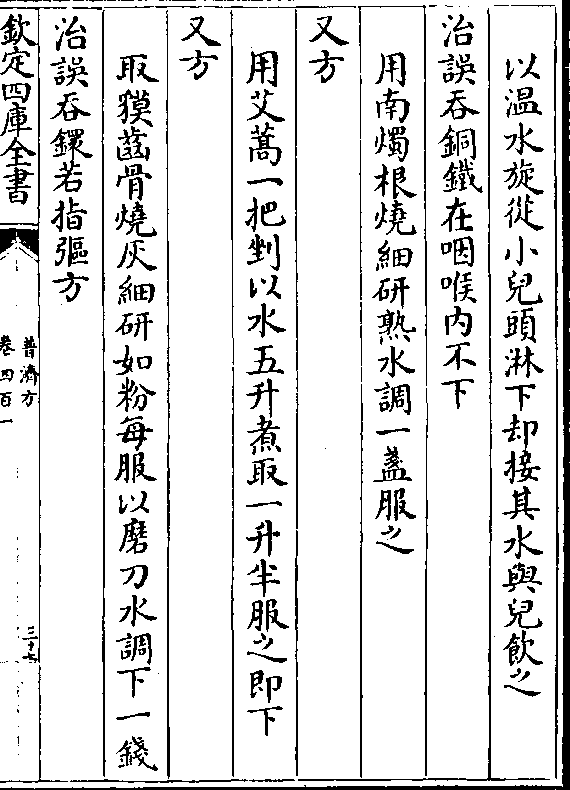 以温水旋從小兒頭淋下却接其水與兒飲之
治誤吞銅鐵在咽喉内不下
用南燭根燒細研熟水調一盞服之
又方
用艾蒿一把剉以水五升煮取一升半服之即下
又方
取獏齒骨燒灰細研如粉每服以磨刀水調下一錢
治誤吞鐶若指彄方
欽定四庫全書
普濟方
卷四百一
三十七